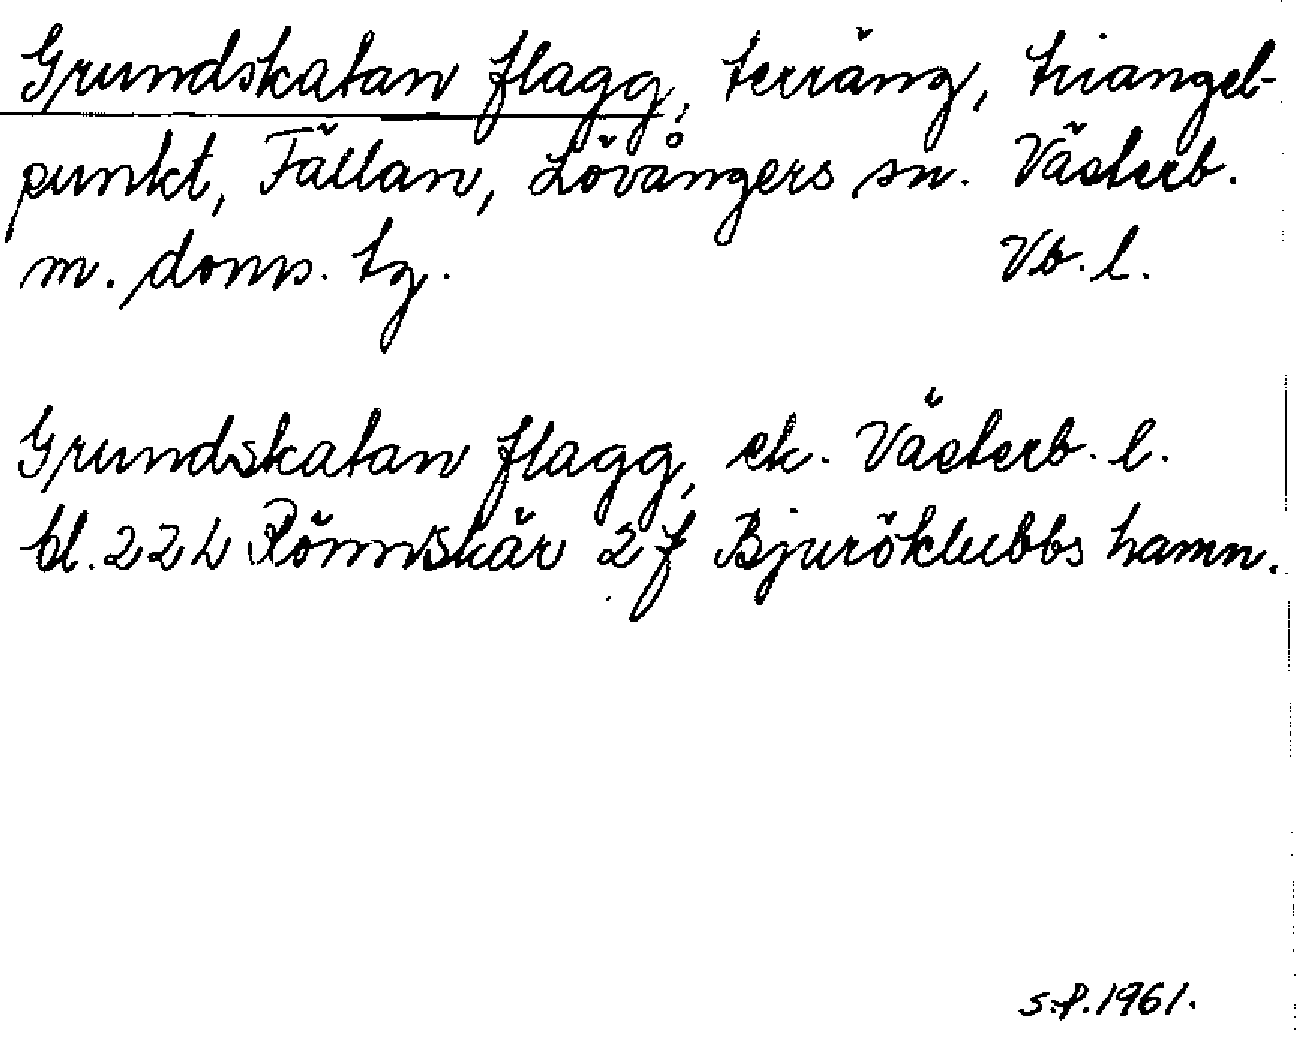 Grundskatan flagg, terräng, triangel-
punkt, Fällan, Lövångers sn. Västerb.
m. doms. tg. Vb. l.
Grundskatan flagg, ek. Västerb. l.
bl. 22 L Rönnskär 2 f Bjuröklubbs hamn.
S.P. 1961.